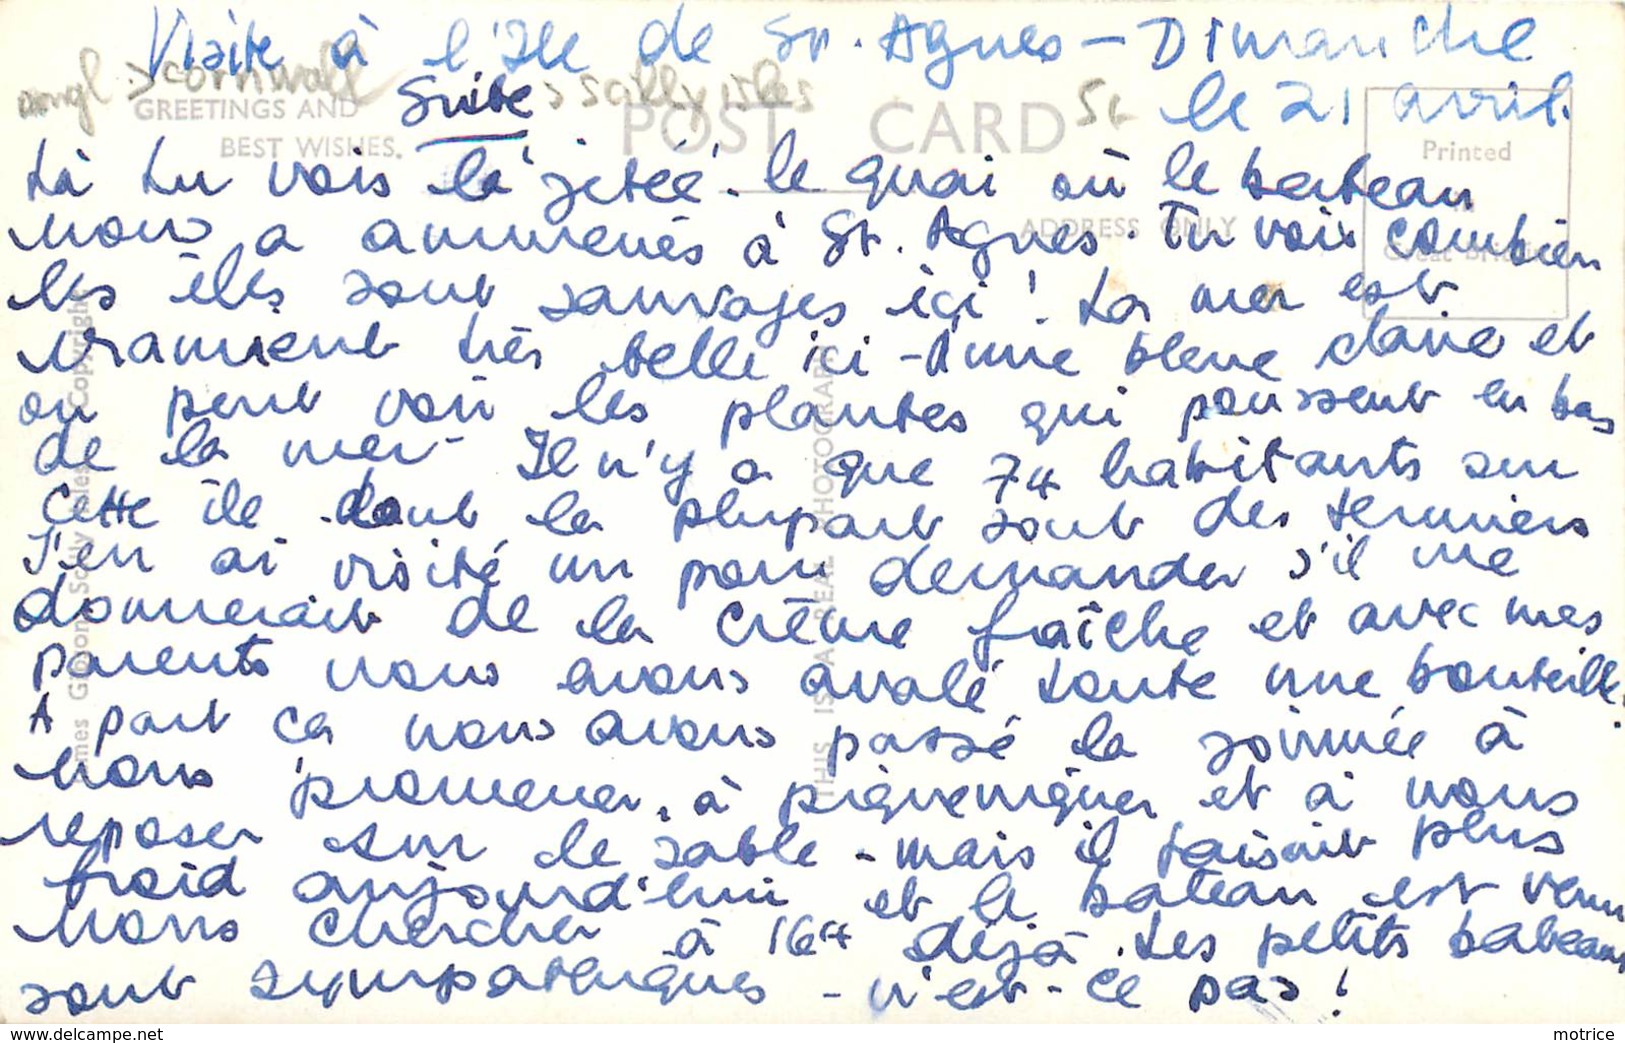 Visite à l'Ile de St. Agnes - Dimanche
angl > cornwall > scilly isles St
GREETINGS AND
BEST WISHES.
Suite
POST CARD
le 21 avril.
Là tu vois la jetée - le quai où le bateau
nous a ammenés à St. Agnes. Tu vois combien
les îles sont sauvages içi ! La mer est
vraiment très belle ici - d'une bleue claire et
on peut voir les plantes qui poussent en bas
de la mer - Il n'y a que 74 habitants sur
cette île dont la plupart sont des fermiers
J'en ai visité un pour demander s'il me
donnerait de la crème fraîche et avec mes
parents nous avons avalé toute une bouteille.
A part ça nous avons passé la journée à
nous promener, à piqueniquer et à nous
reposer sur le sable - mais il faisait plus
froid aujourd'hui et le bateau est venu
nous chercher à 16H déjà. Les petits bateaux
sont sympathiques - n'est-ce pas !
ADDRESS ONLY
Printed
in
Great Britain
James Gibson Scilly Isles Copyright
THIS IS A REAL PHOTOGRAPH
motrice